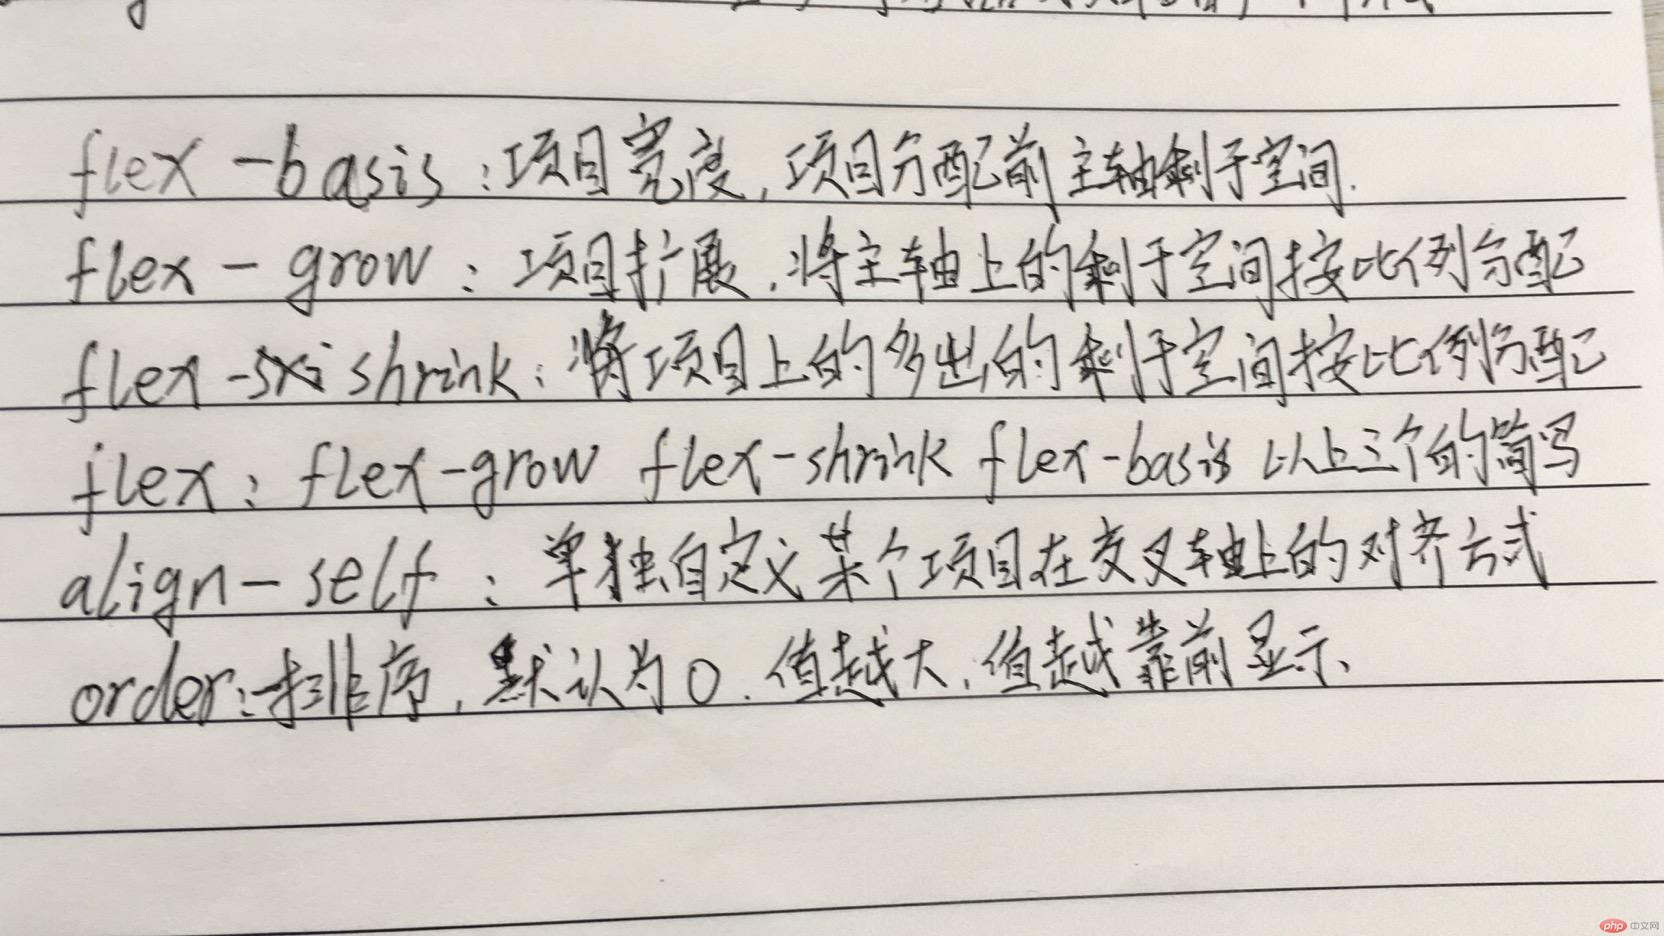 flex-basis:项目宽度,项目分配前主轴剩于空间.
flex-grow:项目扩展.将主轴上的剩于空间按比例分配
flex-shrink:将项目上的多出的剩于空间按比例分配
flex:flex-grow flex-shrink flex-basis 以上三个的简写
align-self:单独自定义某个项目在交叉轴上的对齐方式
order:排序,默认为0.值越大,值越靠前显示、
php 中文网